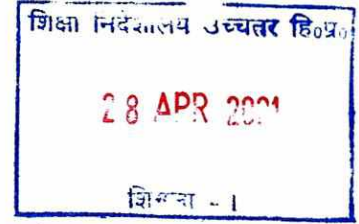 शिक्षा निदेशालय उच्चतर हि०प्र०
28 APR 2021
शिमला - 1